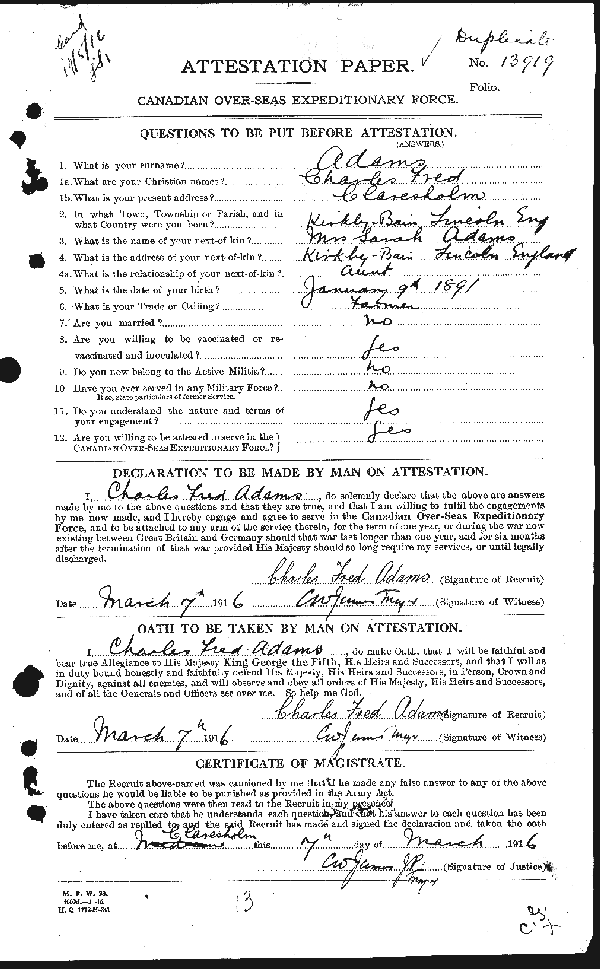 Duplicate
ATTESTATION PAPER.
No. 13919
Folio.
CANADIAN OVER-SEAS EXPEDITIONARY FORCE.
QUESTIONS TO BE PUT BEFORE ATTESTATION.
(ANSWERS.)
1. What is your surname? Adams
1a. What are your Christian names? Charles Fred
1b. What is your present address? Claresholm
2. In what Town, Township or Parish, and in
what Country were you born? Kirkby-Bain Lincoln Eng
3. What is the name of your next-of-kin? Mrs Sarah Adams
4. What is the address of your next-of-kin? Kirkby-Bain Lincoln England
4a. What is the relationship of your next-of-kin? Aunt
5. What is the date of your birth? January 9th 1891
6. What is your Trade or Calling? Farmer
7. Are you married? no
8. Are you willing to be vaccinated or re-
vaccinated and inoculated? yes
9. Do you now belong to the Active Militia? no
10. Have you ever served in any Military Force? no
If so, state particulars of former Service.
11. Do you understand the nature and terms of
your engagement? yes
12. Are you willing to be attested to serve in the
CANADIAN OVER-SEAS EXPEDITIONARY FORCE? yes
DECLARATION TO BE MADE BY MAN ON ATTESTATION.
I, Charles Fred Adams, do solemnly declare that the above are answers
made by me to the above questions and that they are true, and that I am willing to fulfil the engagements
by me now made, and I hereby engage and agree to serve in the Canadian Over-Seas Expeditionary
Force, and to be attached to any arm of the service therein, for the term of one year, or during the war now
existing between Great Britain and Germany should that war last longer than one year, and for six months
after the termination of that war provided His Majesty should so long require my services, or until legally
discharged.
Charles Fred Adams (Signature of Recruit)
Date March 7th 1916 (Signature of Witness)
OATH TO BE TAKEN BY MAN ON ATTESTATION.
I, Charles Fred Adams, do make Oath, that I will be faithful and
bear true Allegiance to His Majesty King George the Fifth, His Heirs and Successors, and that I will as
in duty bound honestly and faithfully defend His Majesty, His Heirs and Successors, in Person, Crown and
Dignity, against all enemies, and will observe and obey all orders of His Majesty, His Heirs and Successors,
and of all the Generals and Officers set over me. So help me God.
Charles Fred Adams (Signature of Recruit)
Date March 7th 1916 (Signature of Witness)
CERTIFICATE OF MAGISTRATE.
The Recruit above-named was cautioned by me that if he made any false answer to any of the above
questions he would be liable to be punished as provided in the Army Act.
The above questions were then read to the Recruit in my presence.
I have taken care that he understands each question, and that his answer to each question has been
duly entered as replied to, and the said Recruit has made and signed the declaration and taken the oath
Claresholm
before me, at this 7th day of March 1916
(Signature of Justice)
M. F. W. 23.
13